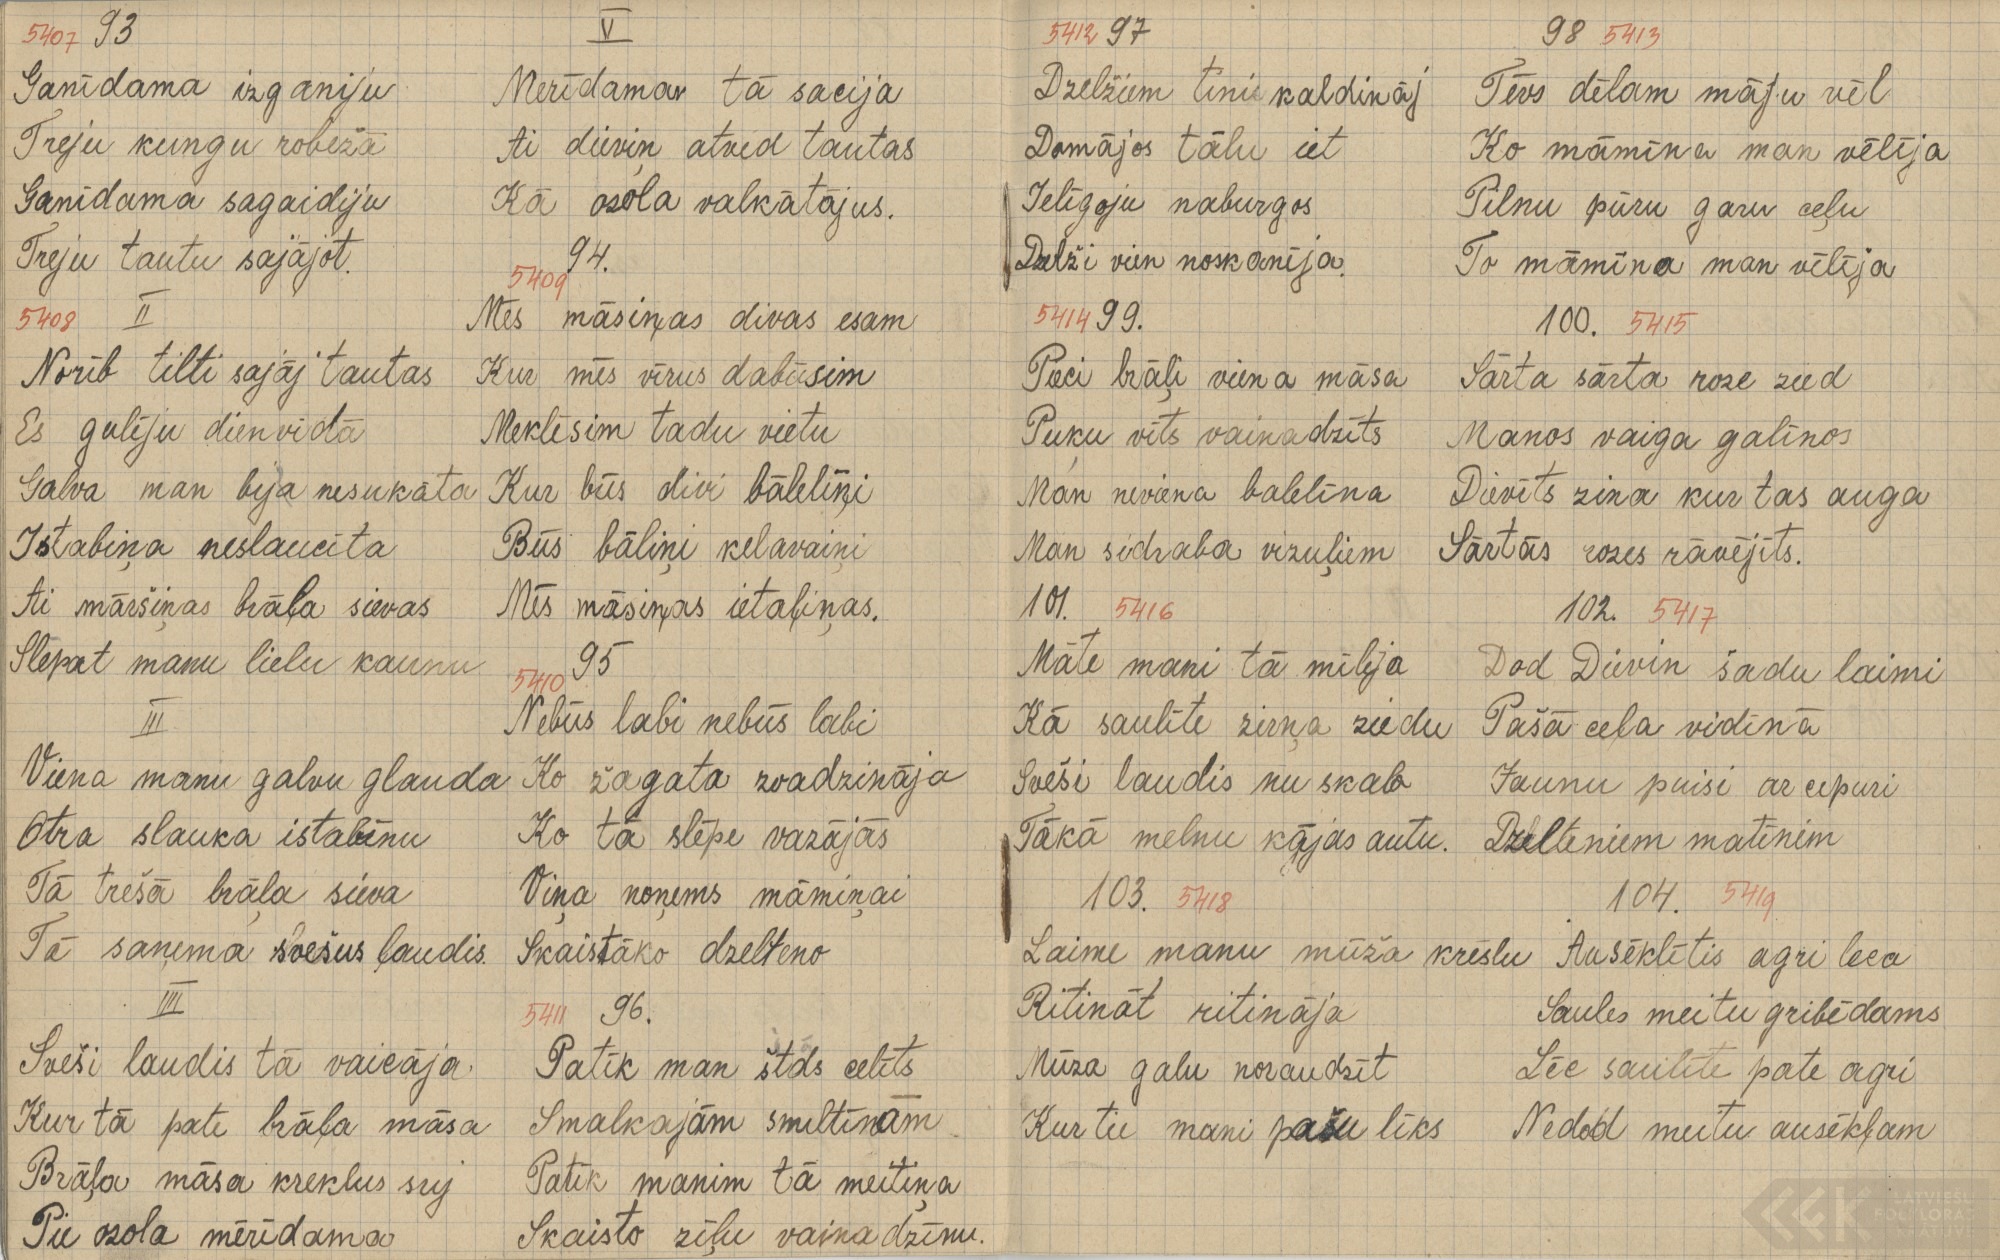 5407 93
Ganīdama izganiju
Treju kungu robežā
Ganīdama sagaidiju
Treju tautu sajājot.
5408 II
Norīb tilti sajāj tautas
Es gulēju dienvidā
Galva man bija nesukāta
Istabiņa neslaucīta
Ai māršiņas brāļa sievas
Slēpat manu lielu kaunu
III
Viena manu galvu glauda
Otra slauka istabīnu
Tā trešā brāļa sieva
Tā saņema svešus ļaudis.
IIII
Sveši laudis tā vaicāja
Kur tā pate brāļa māsa
Brāļa māsa kreklus šuj
Pie ozola mērīdama
V
Merīdama tā sacija
Ai dieviņ atved tautas
Kā ozola valkātājus.
5409 94.
Mēs māsiņas divas esam
Kur mēs vīrus dabūsim
Meklēsim tadu vietu
Kur būs divi bāleliņi
Būs bāliņi kelavaiņi
Mēs māsiņas ietaļiņas.
5410 95
Nebūs labi nebūs labi
Ko žagata zvadzināja
Ko tā slēpe vazājās
Viņa noņems māmiņai
Skaistāko dzelteno
5411 96.
Patīk man celīts
Smalkajām smiltīnām
Patīk manim tā meitiņa
Skaisto zīļu vainadzīnu.
5412 97
Dzelžiem tini kaldināj
Domājos tālu iet
Ielīgoju naburgos
Dzelži vien noskanīja.
98 5413
Tēvs dēlam māju vēl
Ko māmīna man vēlīja
Pilnu pūru garu ceļu
To māmīna man vēlīja
5414 99.
Pieci brāļi viena māsa
Puķu vīts vainadzīts
Man neviena balelīna
Man sidraba vizuļiem
100. 5415
Sārta sārta roze zied
Manos vaiga galīnos
Dievīts zina kur tas auga
Sārtās rozes rāvējīts.
101. 5416
Māte mani tā mīlēja
Kā saulīte zirņa ziedu
Sveši laudis nu skab
Tākā melnu kājas autu.
102. 5417
Dod Dieviņ šadu laimi
Pašā ceļa vidīnā
Jaunu puisi ar cepuri
Dzelteniem matīnim
103. 5418
Laime manu mūža krēslu
Ritināt ritināja
Mūza galu noraudzīt
Kur tie mani pašu liks
104. 5419
Ausēklītis agri leca
Saules meitu gribēdams
Lēc saulīte pate agri
Nedod meitu ausēkļam